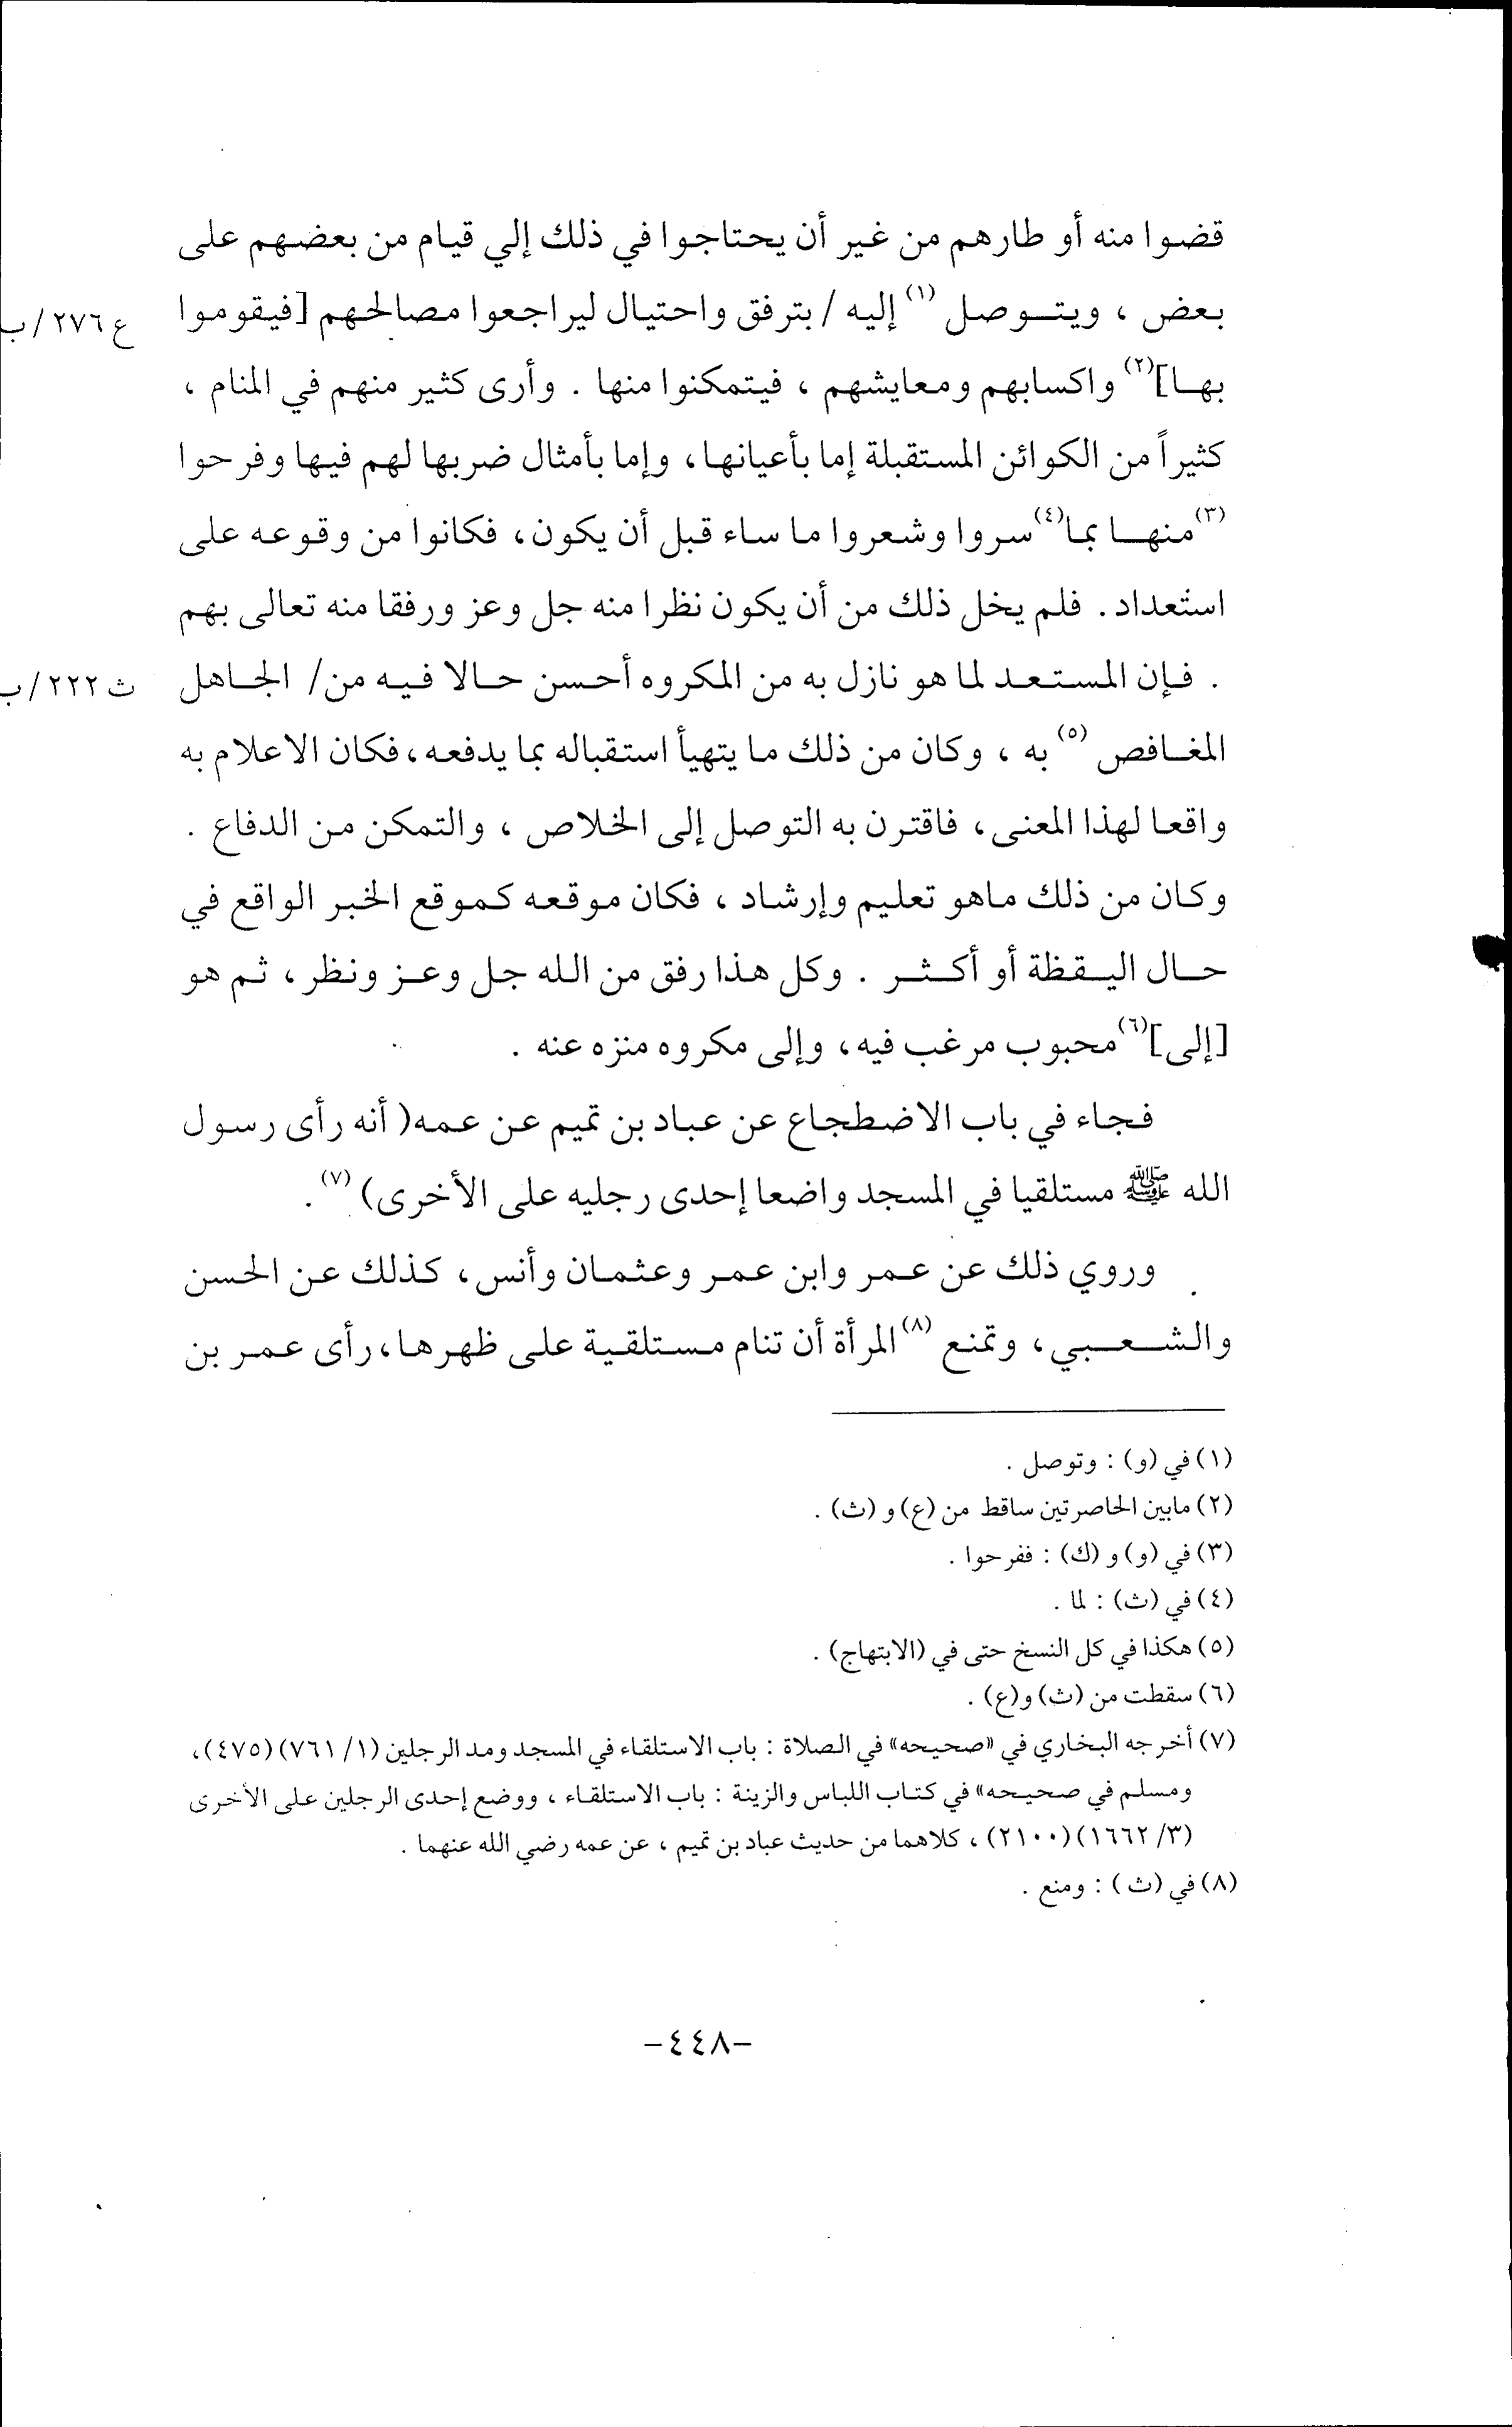 قضوا منه أو طارهم من غير أن يحتاجوا في ذلك إلي قيام من بعضهم على
بعض ، ويتوصل (١) إليه / بترفق واحتيال ليراجعوا مصالحهم [فيقوموا
ع ٢٧٦ / ب
بها](٢) واكسابهم ومعايشهم ، فيتمكنوا منها . وأرى كثير منهم في المنام ،
كثيراً من الكوائن المستقبلة إما بأعيانها، وإما بأمثال ضربها لهم فيها وفرحوا
(٣) منها بما(٤) سروا وشعروا ما ساء قبل أن يكون، فكانوا من وقوعه على
استعداد . فلم يخل ذلك من أن يكون نظرا منه جل وعز ورفقا منه تعالى بهم
. فإن المستعد لما هو نازل به من المكروه أحسن حالا فيه من/ الجاهل
ث ٢٢٢ / ب
المغافص (٥) به ، وكان من ذلك ما يتهيأ استقباله بما يدفعه، فكان الاعلام به
واقعا لهذا المعنى، فاقترن به التوصل إلى الخلاص ، والتمكن من الدفاع .
وكان من ذلك ماهو تعليم وإرشاد ، فكان موقعه كموقع الخبر الواقع في
حال اليقظة أو أكثر . وكل هذا رفق من الله جل وعز ونظر، ثم هو
[إلى](٦) محبوب مرغب فيه، وإلى مكروه منزه عنه .
فجاء في باب الاضطجاع عن عباد بن تميم عن عمه( أنه رأى رسول
الله ﷺ مستلقيا في المسجد واضعا إحدى رجليه على الأخرى) (٧) .
وروي ذلك عن عمر وابن عمر وعثمان وأنس، كذلك عن الحسن
والشعبي، وتمنع (٨) المرأة أن تنام مستلقية على ظهرها، رأى عمر بن
(١) في (و) : وتوصل .
(٢) مابين الحاصرتين ساقط من (ع) و (ث) .
(٣) في (و) و (ك) : ففرحوا .
(٤) في (ث) : لما .
(٥) هكذا في كل النسخ حتى في (الابتهاج) .
(٦) سقطت من (ث) و(ع) .
(٧) أخرجه البخاري في «صحيحه» في الصلاة : باب الاستلقاء في المسجد ومد الرجلين (١/ ٧٦١) (٤٧٥)،
ومسلم في صحيحه» في كتاب اللباس والزينة : باب الاستلقاء ، ووضع إحدى الرجلين على الأخرى
(٣/ ١٦٦٢) (٢١٠٠) ، كلاهما من حديث عباد بن تميم ، عن عمه رضي الله عنهما .
(٨) في (ث ) : ومنع .
-٤٤٨-